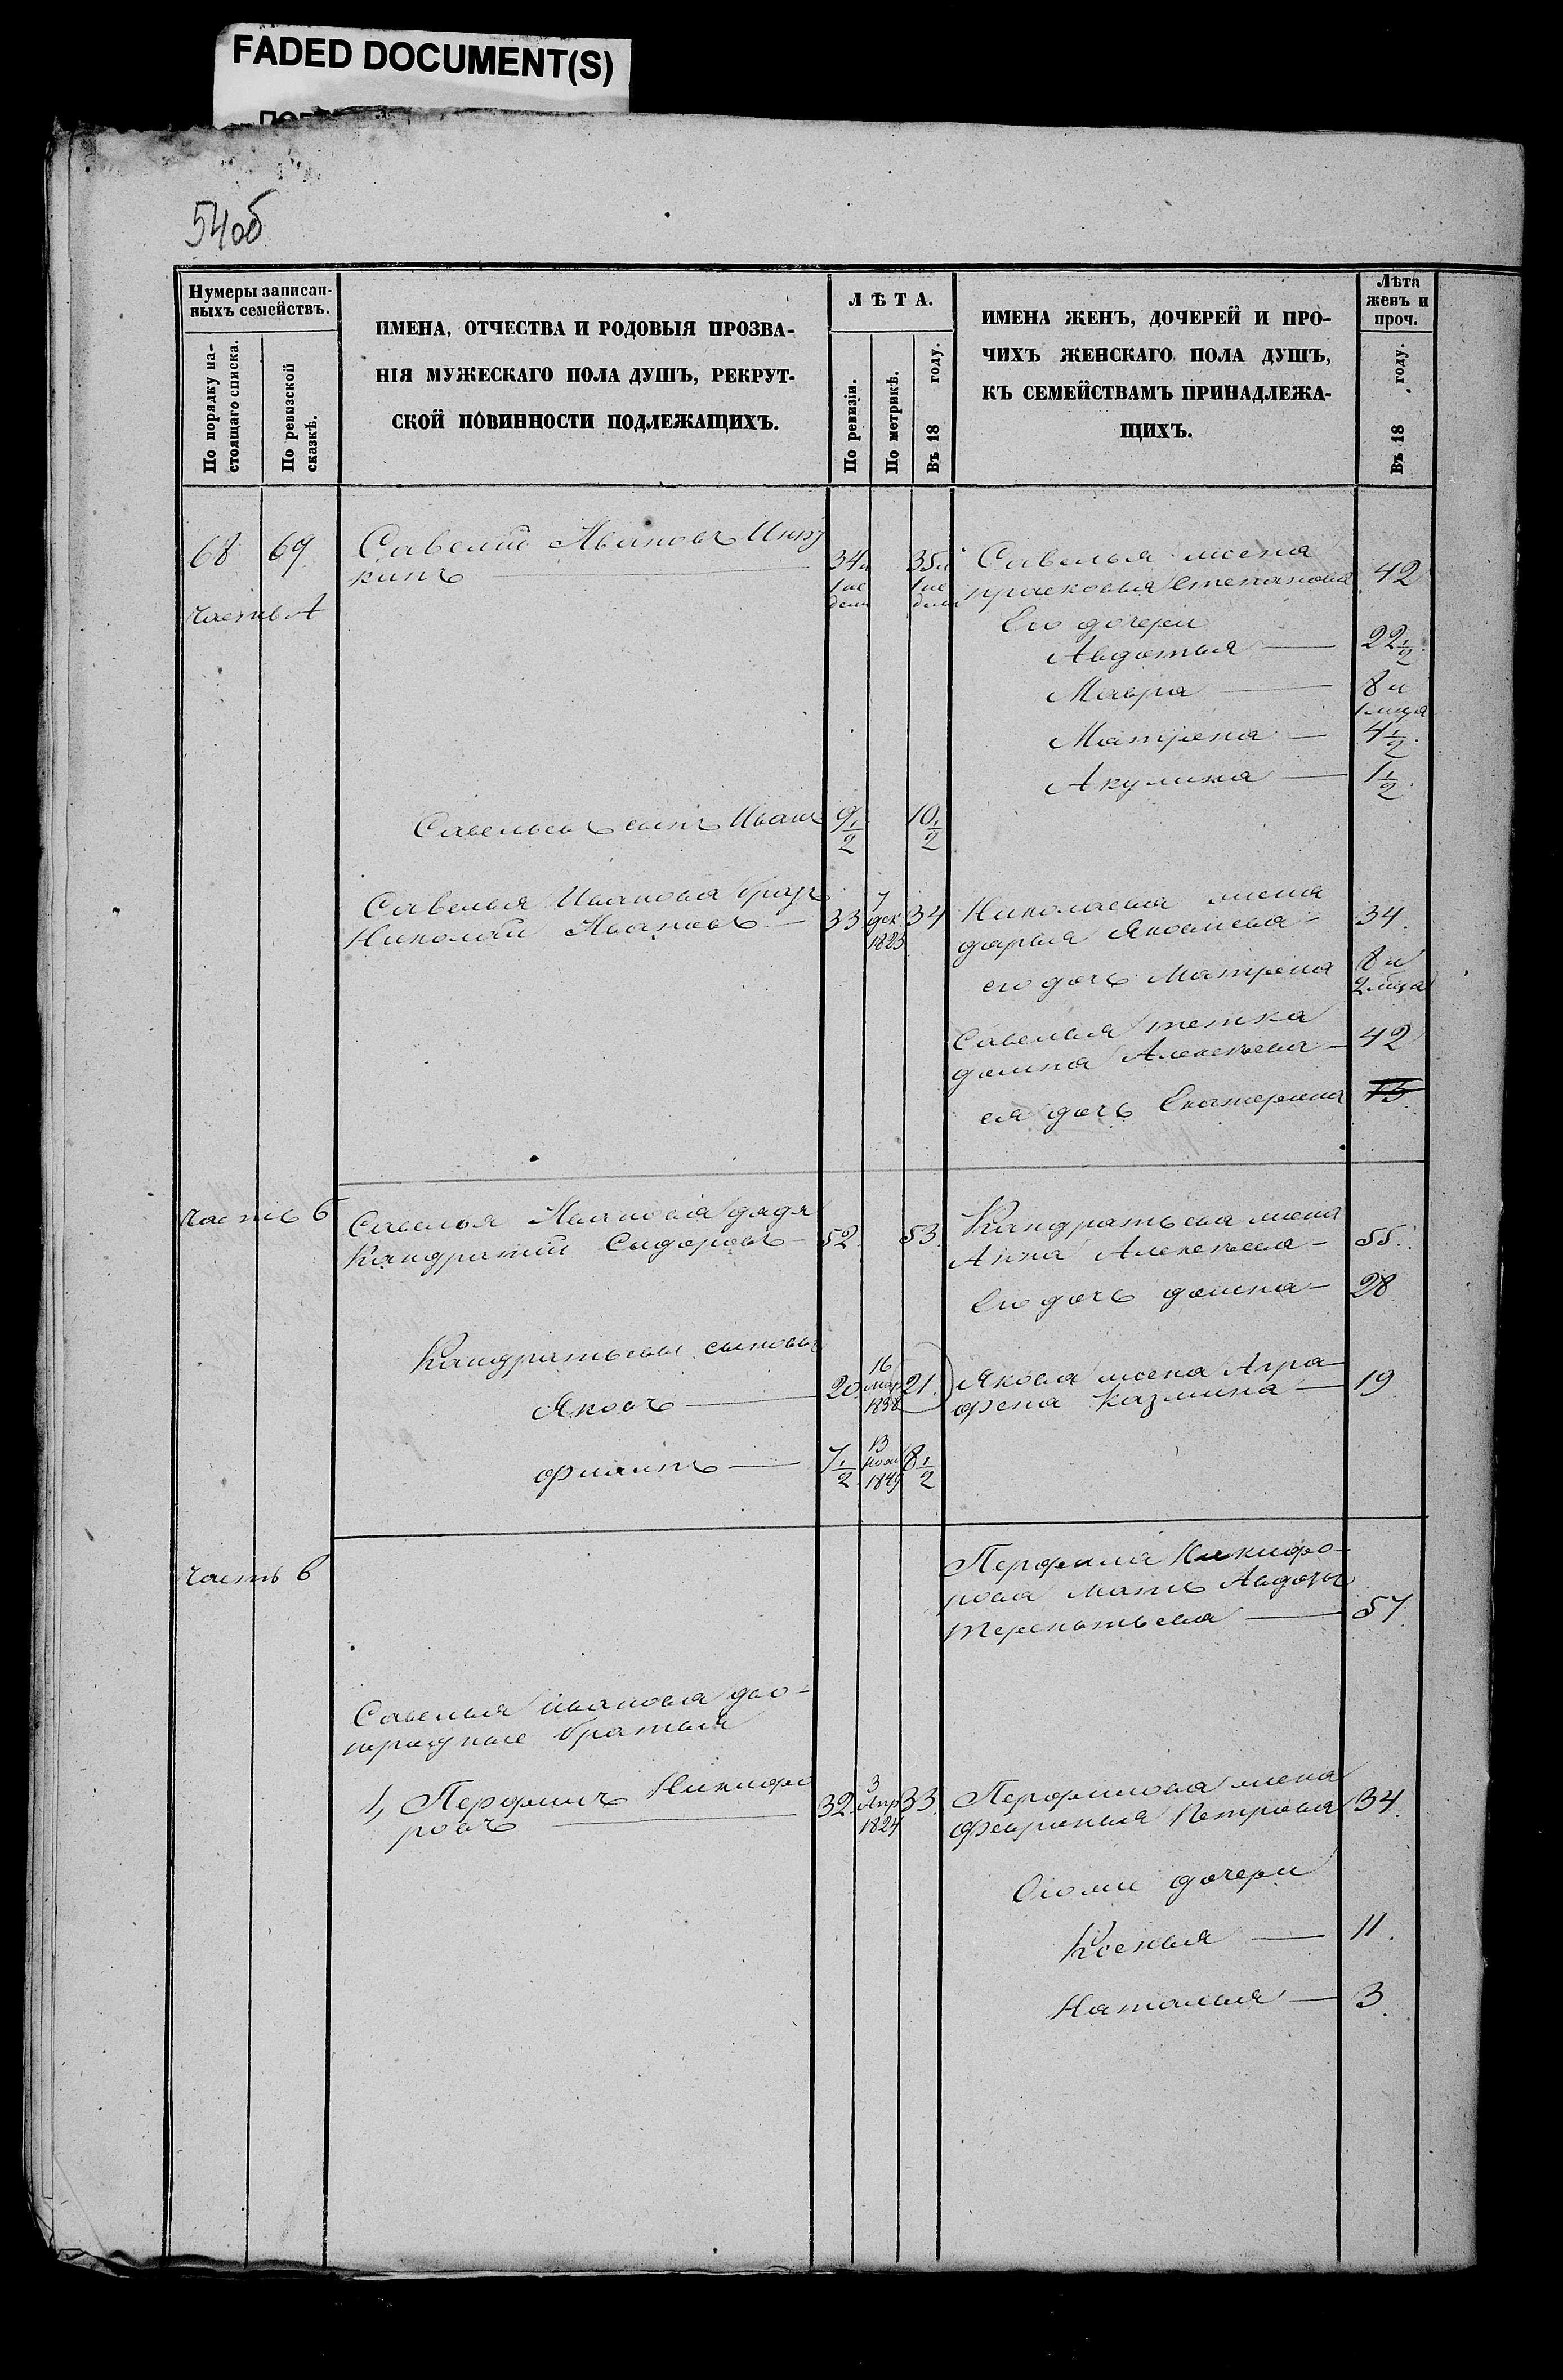 FADED DOCUMENT(S)
54об
Нумеры записан-
ныхъ семействъ.
По порядку на-
стоящаго списка.
По ревизской
сказкѣ.
ИМЕНА, ОТЧЕСТВА И РОДОВЫЯ ПРОЗВА-
НІЯ МУЖЕСКАГО ПОЛА ДУШЪ, РЕКРУТ-
СКОЙ ПОВИННОСТИ ПОДЛЕЖАЩИХЪ.
ЛѢТА.
По ревизіи.
По метрикѣ.
Въ 18 году.
ИМЕНА ЖЕНЪ, ДОЧЕРЕЙ И ПРО-
ЧИХЪ ЖЕНСКАГО ПОЛА ДУШЪ,
КЪ СЕМЕЙСТВАМЪ ПРИНАДЛЕЖА-
ЩИХЪ.
Лѣта
женъ и
проч.
Въ 18 году.
68 69 Савелий Ивановъ
кинъ 34 и 35 и Савелья жена
1 не 1 не Прасковья Степанова 42
дели дели
часть А
Его дочери
Авдотья 22 1/2
Мавра 8 и
1 мца
Матрена 4 1/2
Акулина 1 1/2
Савельевъ сынъ Иванъ 9 1/2 10 1/2
Савелья Иванова братъ
Николай Ивановъ 33 7 дек 1823 34 Николаева жена
дарья Яковлева 34.
его дочь Матрена 8 и
2 мца
Савелья тетка
домна Алексѣева 42
ея дочь Екатерина 15
часть б Савелья Иванова дядя
Кандратий Сидоровъ 52. 53. Кандратьева жена
Анна Алексѣева 55.
Его дочь домна 28
Кандратьевы сыновья
Яковъ 20. 16 мар 1838 21. Якова жена Агра-
фена Казмина 19
Филипъ 7 1/2 13 нояб 1849 8 1/2
часть в Перфила Никифо-
рова мать Авдотья
Терентьева 57.
Савелья Иванова дво-
юродные братья
1, Перфилъ Никифо
ровъ 32. 3 Апр 1824 33. Перфилова жена
Февронья Петрова 34.
Его же дочери
Ксенья 11.
Наталья 3.